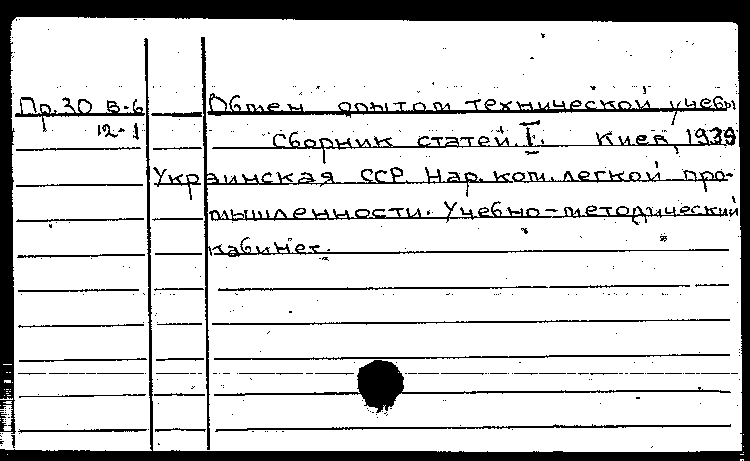 Пр. 30 В-6 Обмен опытом технической учебы
12-1 Сборник статей. I. Киев, 1939
Украинская ССР. Нар. ком. легкой про-
мышленности. Учебно-методический
кабинет.